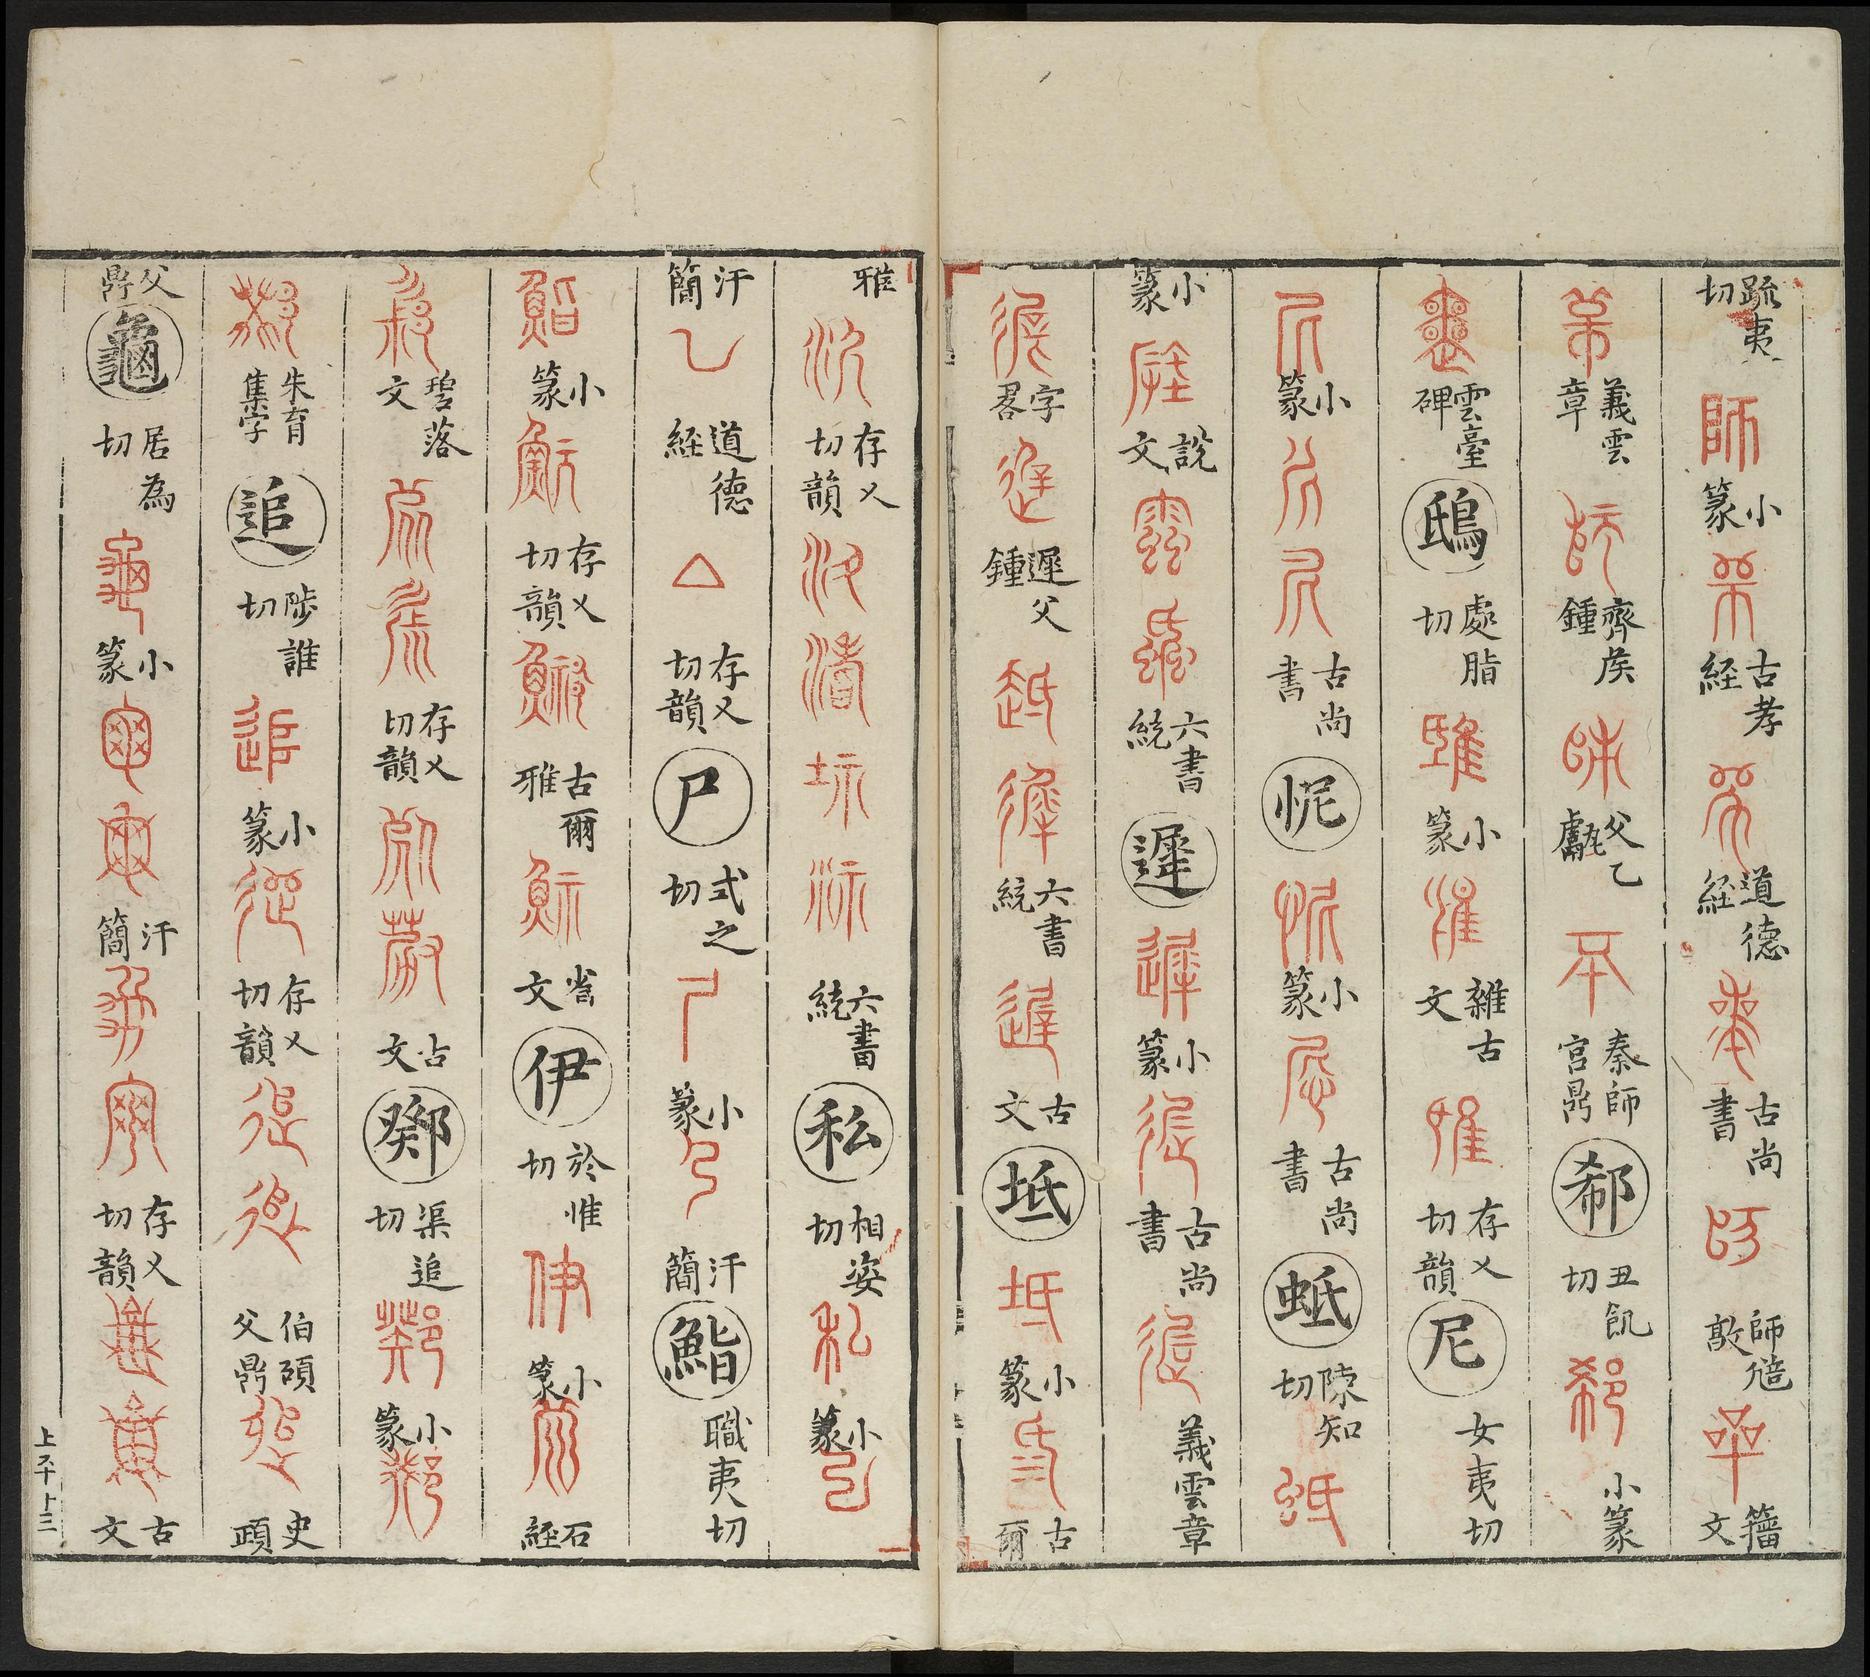 疏夷切 師 小篆 古孝経 道德経 古尚書 師𩵦敦 籀文
義雲章 齊矦鍾 父乙甗 秦師宫鼎 郗 丑飢切 小篆
雲臺碑 鴟 處脂切 小篆 雜古文 存乂切韻 尼 女夷切
小篆 古尚書 怩 小篆 古尚書 蚳 陳知切
小篆 說文 六書統 遲 小篆 古尚書 義雲章
字畧 遲父鍾 六書統 古文 坻 小篆 古爾
雅 存乂切韻 六書統 私 相姿切 小篆
汗簡 道德経 存乂切韻 尸 式之切 小篆 汗簡 鮨 職夷切
小篆 存乂切韻 古爾雅 省文 伊 於惟切 小篆 石経
碧落文 存乂切韻 古文 鄈 渠追切 小篆
朱育集字 追 陟誰切 小篆 存乂切韻 伯頵父鼎 史頙
父鼎 龜 居為切 小篆 汗簡 存乂切韻 古文
上平十三